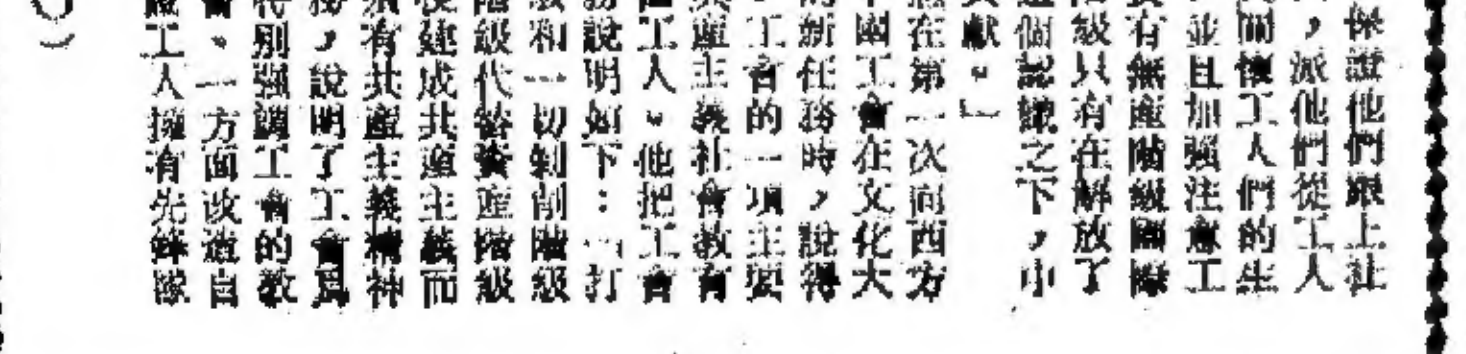 保證他們跟上社
，派他們從工人
關懷工人們的生
並且加強注意工
有無產階級國際
級只有在解放了
個認識之下，中
獻。」
在第一次向西方
國工會在文化大
新任務時，說得
工會的一項主要
產主義社會教育
工人。他把工會
說明如下：「打
和一切剝削階級
級代替資產階級
建成共產主義而
有共產主義精神
，說明了工會爲
別强調工會的教
。一方面改造自
工人擁有先鋒隊